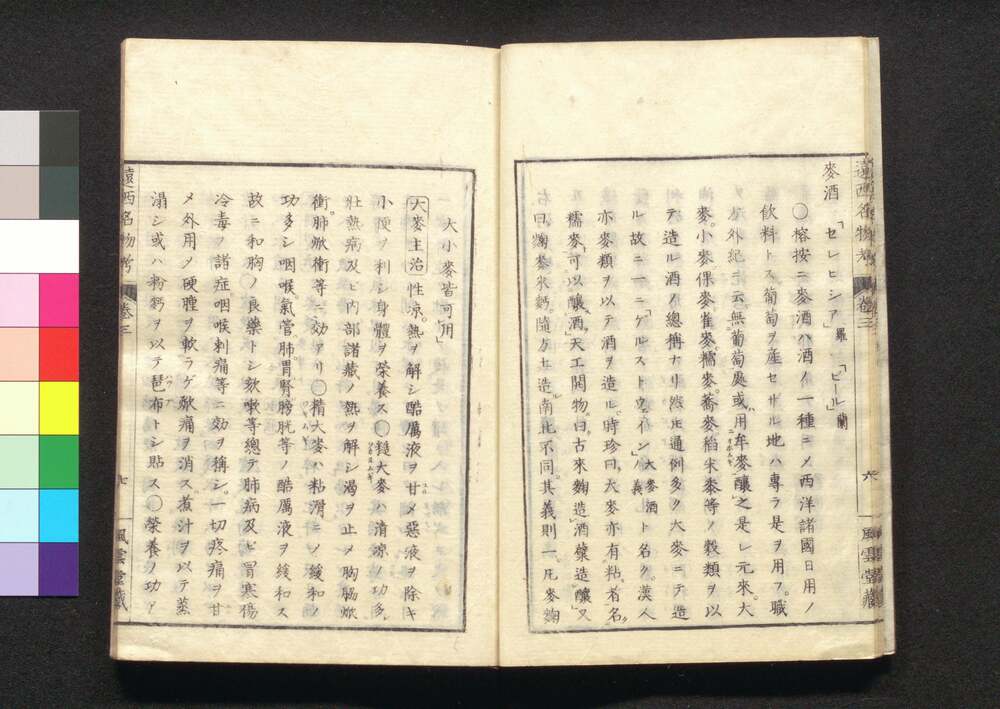 遠西名物考 卷三 六 風雲堂藏
麥酒 「セレヒシア」羅 「ビール」蘭
〇榕按ニ麥酒ハ酒ノ一種ニメ西洋諸國日用ノ
飲料トス葡萄ヲ産セサル地ハ專ラ是ヲ用フ。職
方外紀ニ云、無葡萄處或「用牟麥釀」之是レ元來。大
麥。小麥。倮麥。雀麥。糯麥。蕎麥。稻米。黍等ノ穀類ヲ以
テ造ル酒ノ總稱ナリ然レ𪜈通例多ク大麥ニテ造
ル故ニ一ニ「ゲルストウェイン」大麥酒義ト名ク。漢人
亦麥類ヲ以テ酒ヲ造ル。時珍曰、大麥亦有粘者、名
糯麥、可以釀酒、天工開物曰古來麴造酒糵造釀又
曰麴麥米麪。隨方土造、南北不同。其義則一。凡麥麴
大小麥皆可用」
大麥主治 性凉。熱ヲ解シ酷厲液ヲ甘メ惡液ヲ除キ
小便ヲ利シ身體ヲ榮養ス〇麤大麥ハ清凉ノ功多。
壯熱病及ヒ内部諸藏ノ熱ヲ解シ渴ヲ止メ胸膈焮
衝。肺焮衝等ニ効アリ〇精大麥ハ粘滑ニメ緩和ノ
功多シ咽喉氣管。肺。胃腎膀胱等ノ酷厲液ヲ緩和ス
故ニ和胸ノ良藥トシ欬嗽等總テ肺病及ヒ冒寒傷
冷毒ヲ諸症咽喉刺痛等ニ効ヲ稱シ。一切疼痛ヲ甘
メ外用メ硬腫ヲ軟ラゲ焮痛ヲ消ス。煮汁ヲ以テ蒸
溻シ或ハ粉麪ヲ以テ琶布トシ貼ス〇榮養ノ功ア
遠西名物考 卷三 七 風雲堂藏